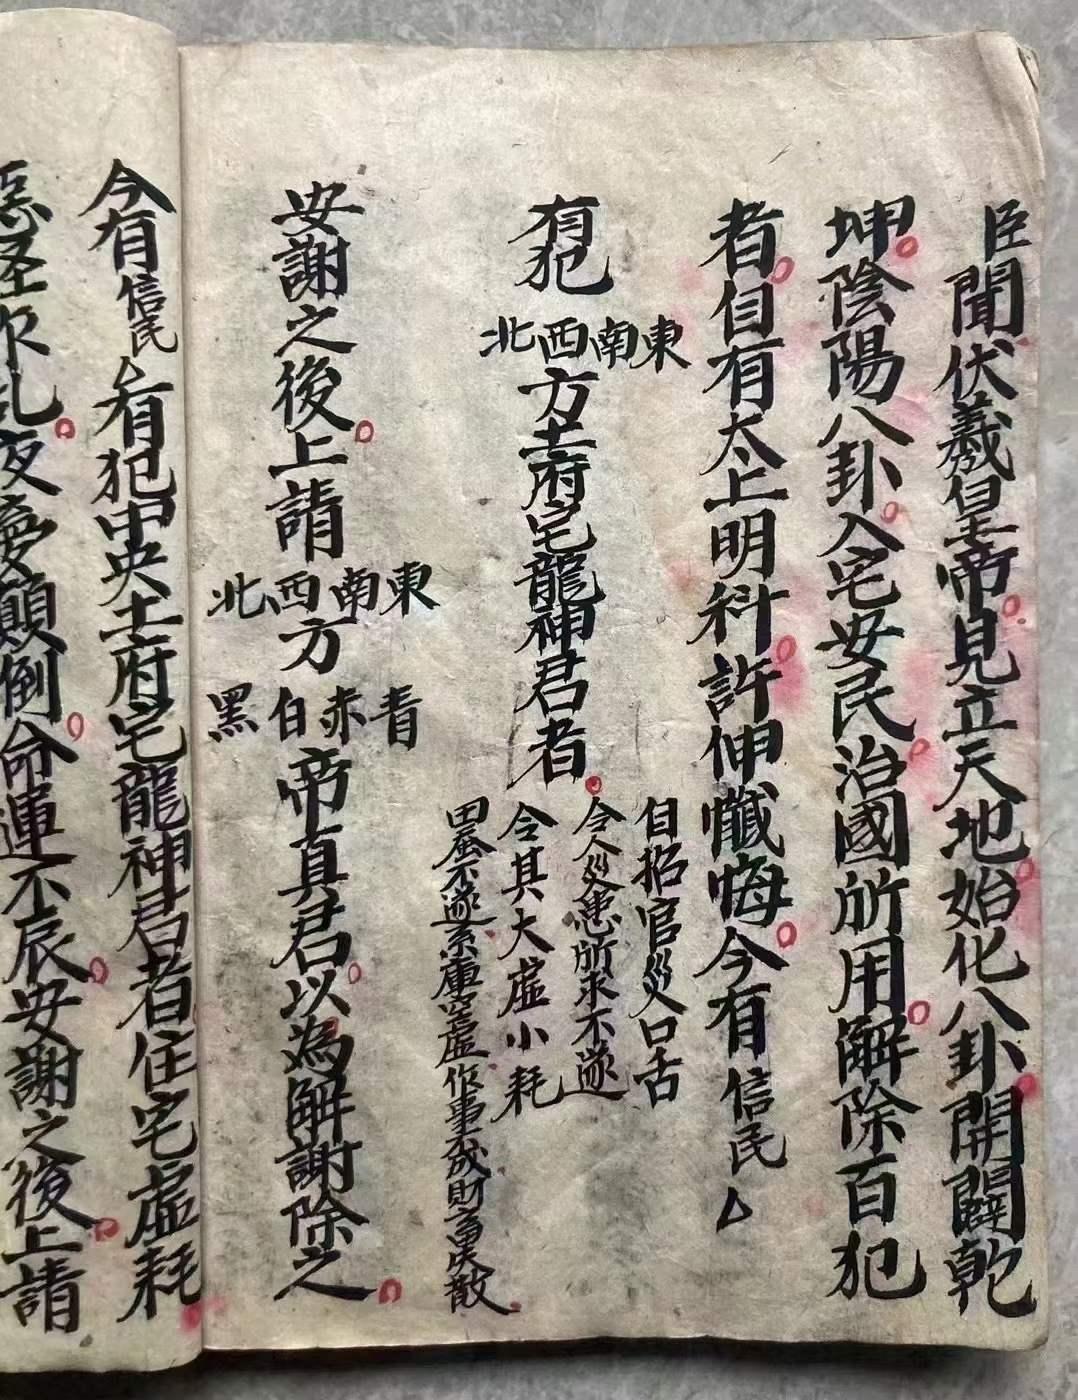 臣聞伏羲皇帝見立天地始化八卦開闢乾
坤陰陽八卦入宅安民治國所用解除百犯
者自有太上明科許伸懺悔今有信民
有犯
東南西北
方土府宅龍神君者
自招官災口舌
令人災患所求不遂
令其大虛小耗
田蚕不遂系庫空虛作事不成財畜失散
安謝之後上請
東南西北
方
青赤白黑
帝真君以為解謝除之
今有信民
有犯中央土府宅龍神君者住宅虛耗
乱夜夢顛倒命運不辰安謝之後上請